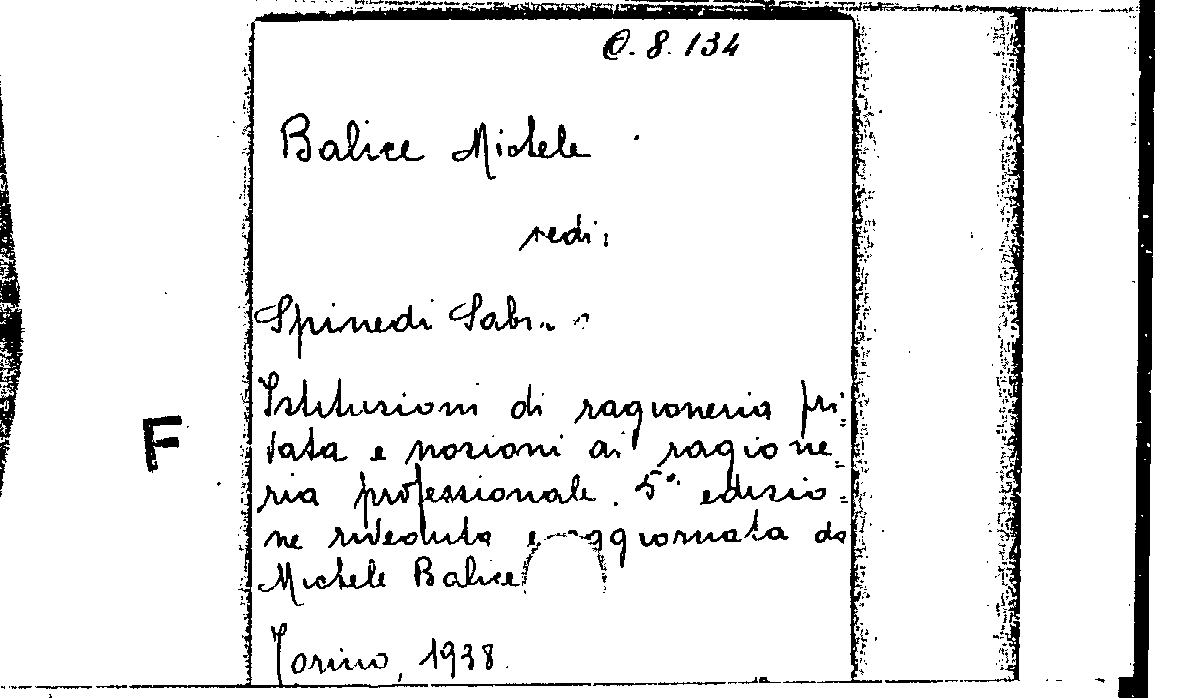 O. 8. 134
Balice Michele
vedi:
Spinedi
Istituzioni di ragioneria pri=
vata e nozioni di ragione=
ria professionale. 5ª edizio=
ne riveduta e aggiornata da
Michele Balice
Torino, 1938.
F